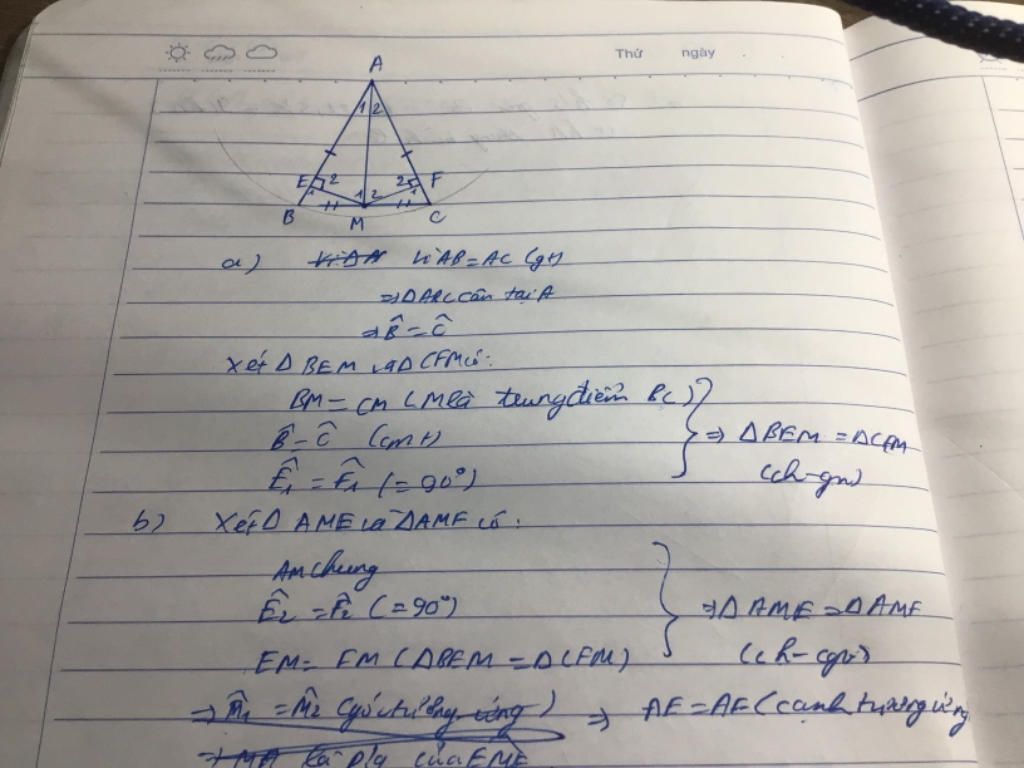 Thứ ngày
A
1 2
E 2 2 F
1 1 2 1
B M C
a) Vì AB = AC (gt)
⇒ Δ ABC cân tại A
⇒ B̂ = Ĉ
Xét Δ BEM và Δ CFM có:
BM = CM (M là trung điểm BC)
B̂ = Ĉ (cmt) ⇒ Δ BEM = Δ CFM
Ê₁ = F̂₁ (= 90°) (ch-gn)
b) Xét Δ AME và Δ AMF có:
AM chung
Ê₂ = F̂₂ (= 90°) ⇒ Δ AME = Δ AMF
EM = FM (Δ BEM = Δ CFM) (ch-cgv)
⇒ M̂₁ = M̂₂ (góc tương ứng) ⇒ AE = AF (cạnh tương ứng
⇒ MA là p/g của EMF